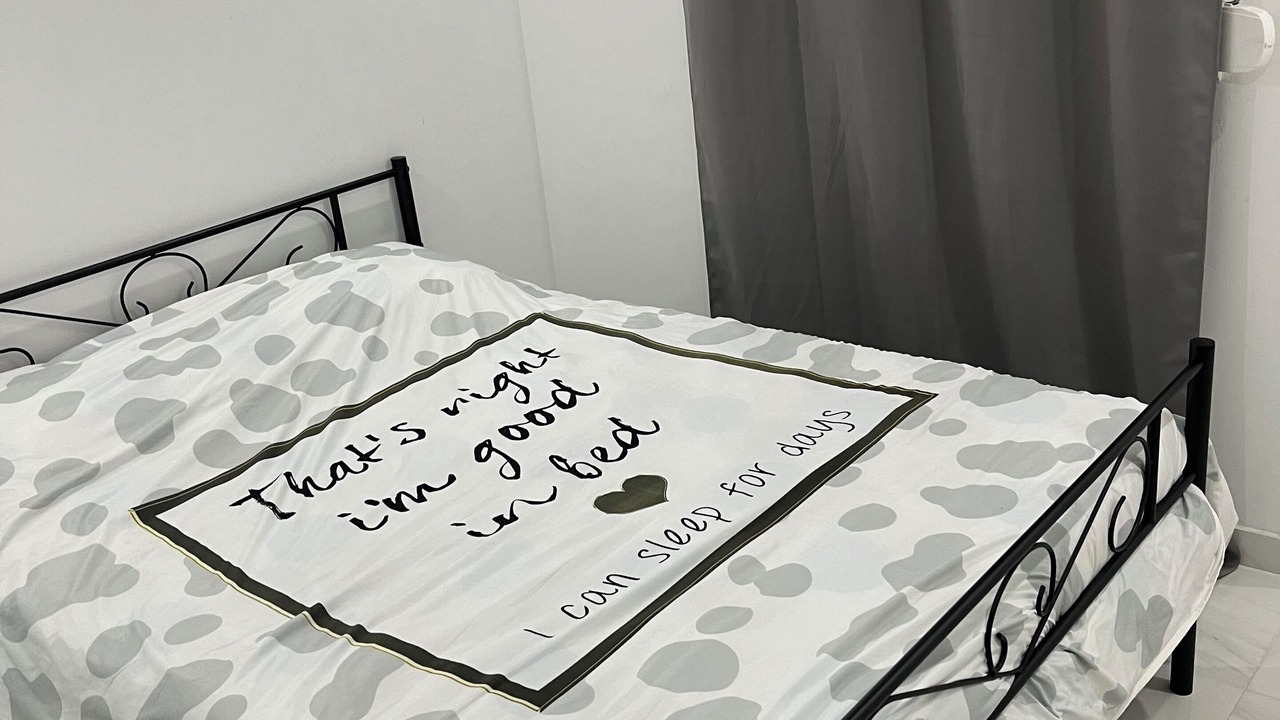 That's right
i'm good
in bed
I can sleep for days